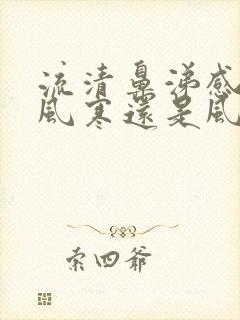 流清鼻涕感
風寒還是風
索四爺